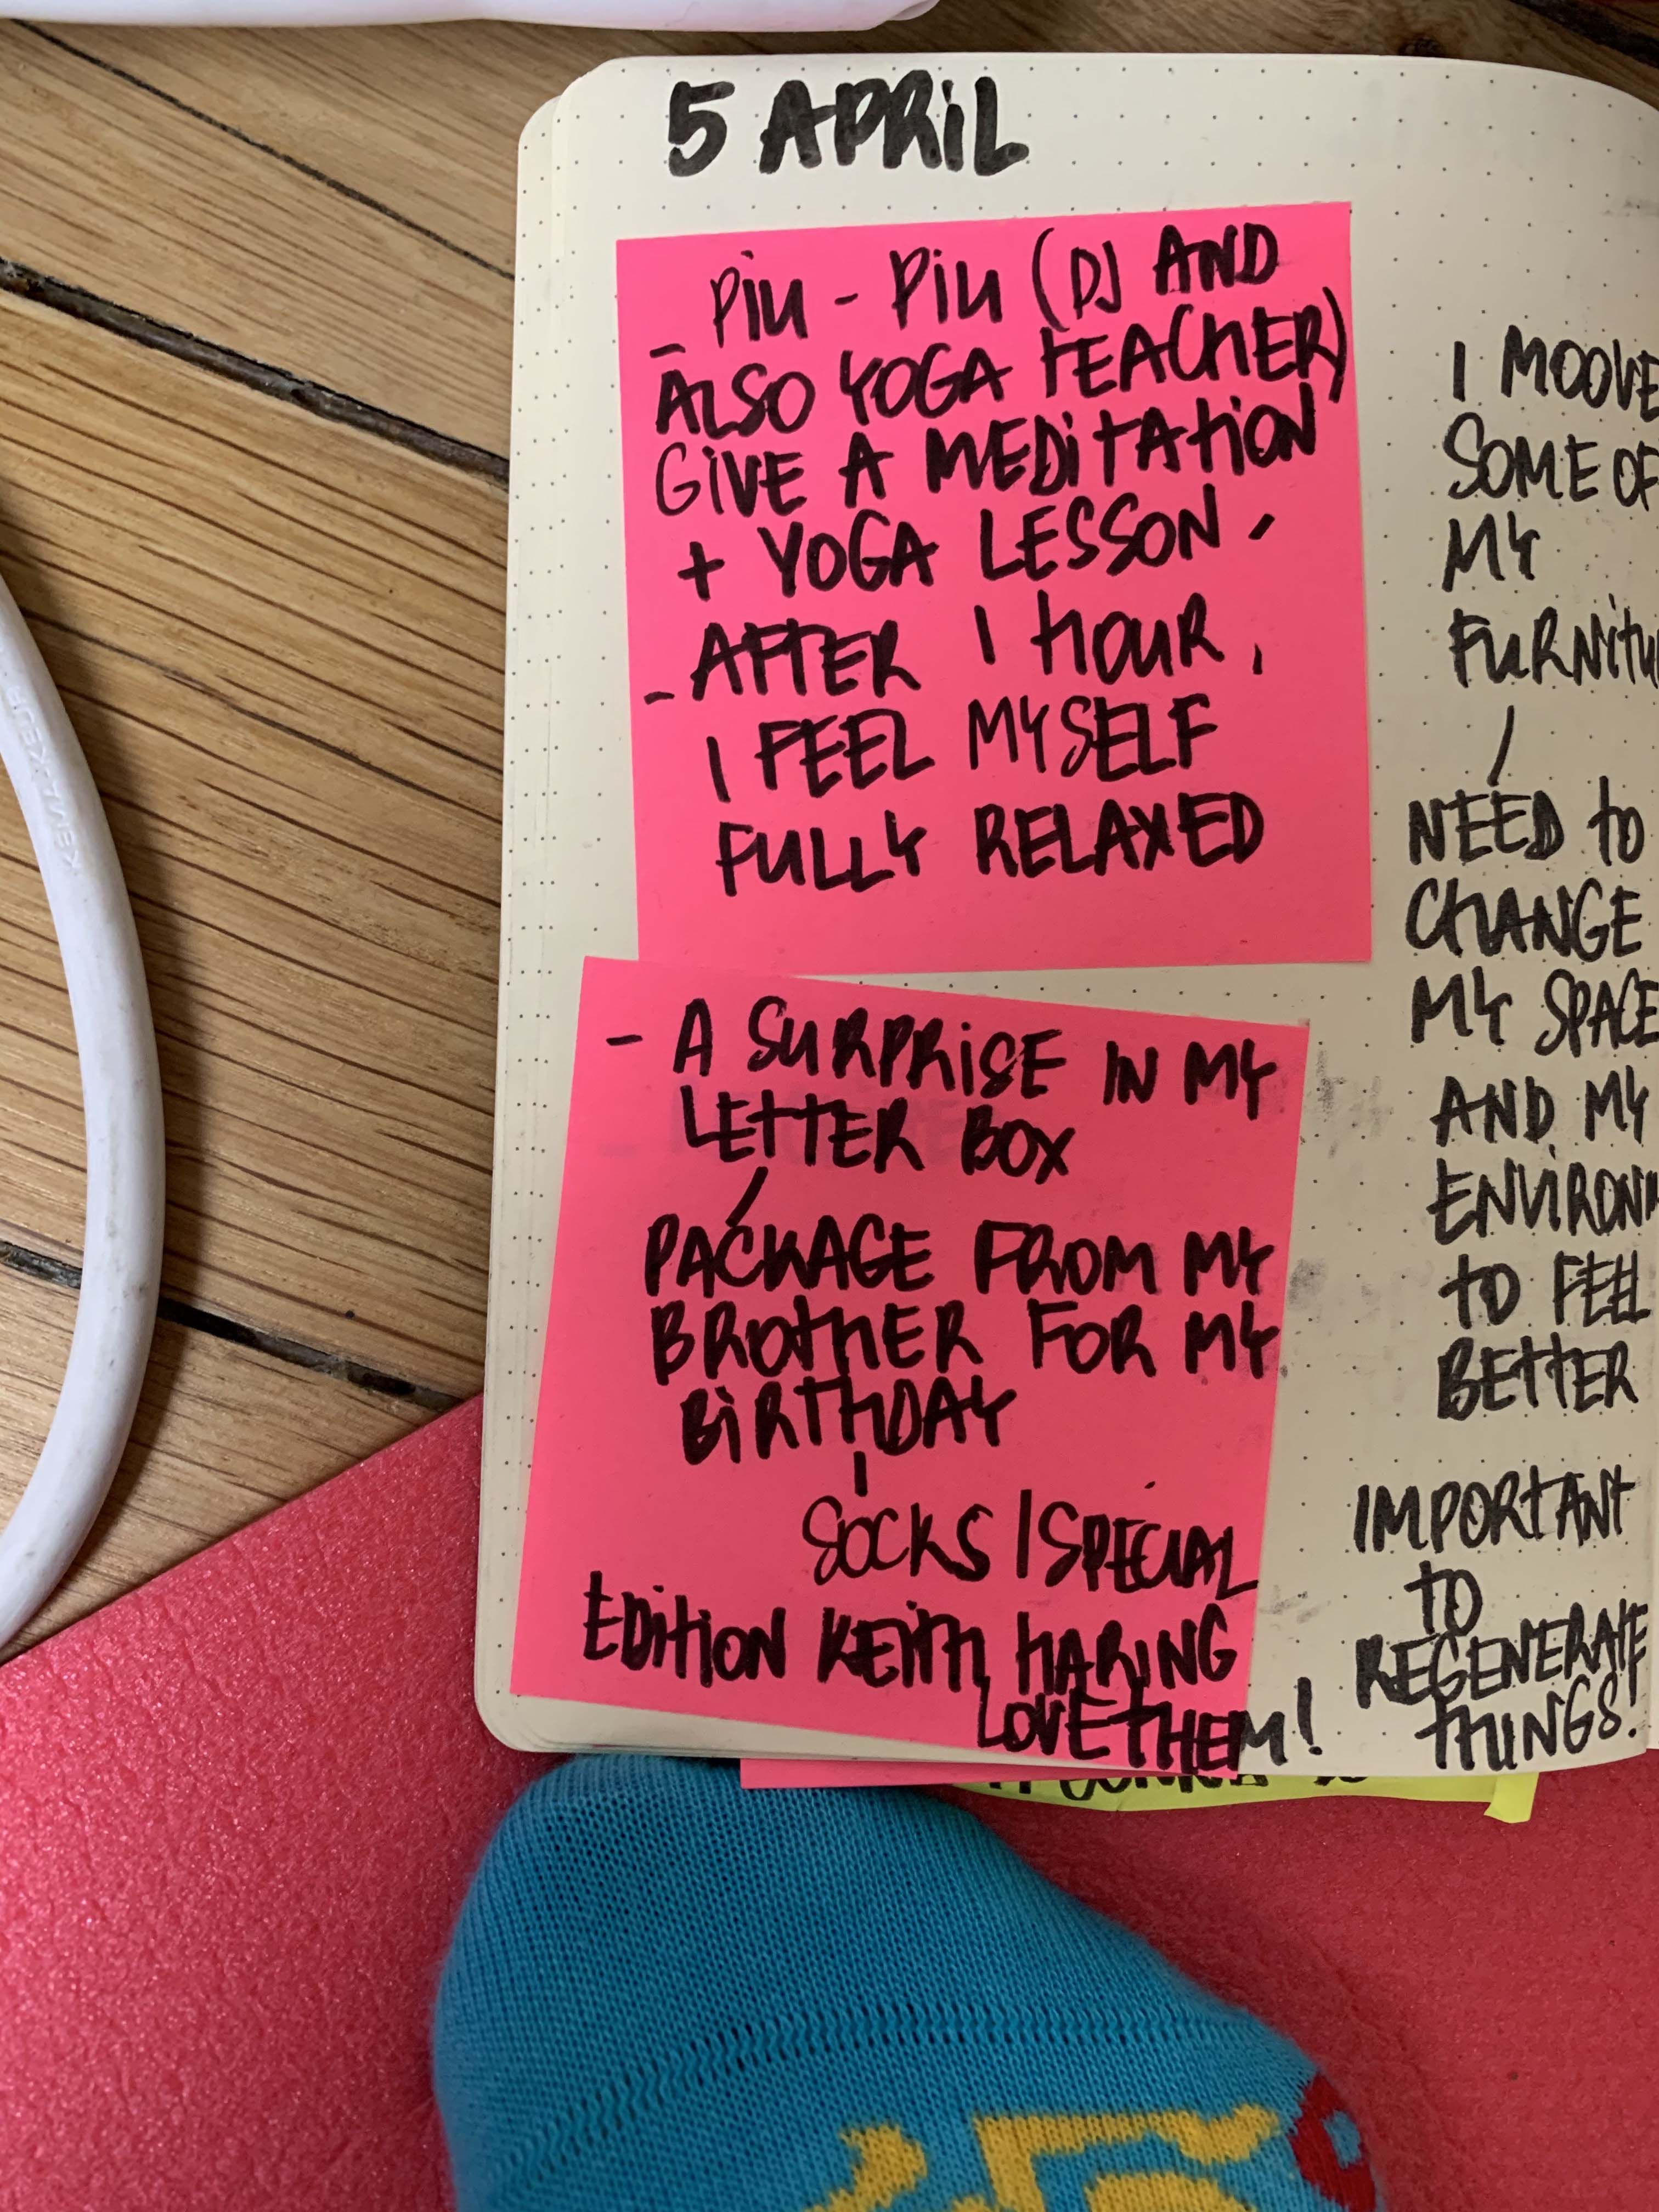 5 APRIL
- PIU - PIU (DJ AND
ALSO YOGA TEACHER)
GIVE A MEDITATION
+ YOGA LESSON -
- AFTER 1 HOUR,
I FEEL MYSELF
FULLY RELAXED
- A SURPRISE IN MY
LETTER BOX
/
PACKAGE FROM MY
BROTHER FOR MY
BIRTHDAY
|
SOCKS / SPECIAL
EDITION KEITH HARING
LOVE THEM!
I MOOVE
SOME OF
MY
FURNITU
/
NEED TO
CHANGE
MY SPACE
AND MY
ENVIRONM
TO FEEL
BETTER
IMPORTANT
TO
REGENERATE
THINGS!